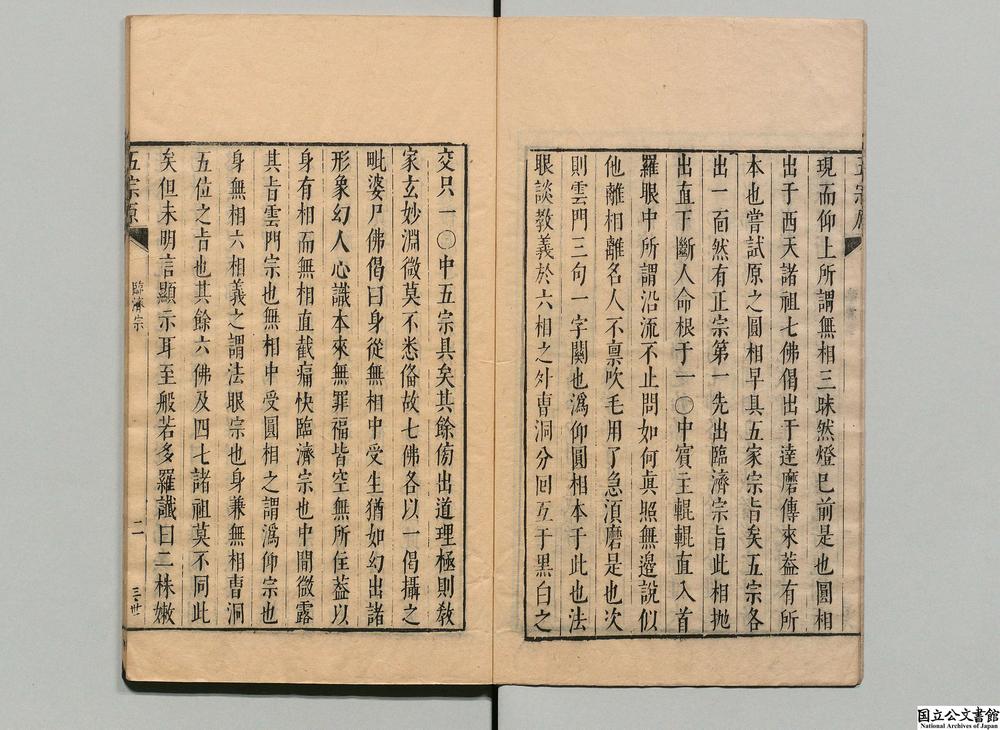 五宗原
現而仰上所謂無相三昧然燈已前是也圓相
出于西天諸祖七佛偈出于達磨傳來葢有所
本也嘗試原之圓相早具五家宗旨矣五宗各
出一面然有正宗第一先出臨濟宗旨此相拋
出直下斷人命根于一〇中賓主輥輥直入首
羅眼中所謂沿流不止問如何眞照無邊說似
他離相離名人不禀吹毛用了急湏磨是也次
則雲門三句一字關也溈仰圓相本于此也法
眼談敎義於六相之外曹洞分回互于黑白之
交只一〇中五宗具矣其餘傍出道理極則敎
家玄妙淵微莫不悉俻故七佛各以一偈攝之
毗婆尸佛偈曰身從無相中受生猶如幻出諸
形象幻人心識本來無罪福皆空無所住葢以
身有相而無相直截痛快臨濟宗也中間微露
其旨雲門宗也無相中受圓相之謂溈仰宗也
身無相六相義之謂法眼宗也身兼無相曹洞
五位之旨也其餘六佛及四七諸祖莫不同此
矣但未明言顯示耳至般若多羅讖曰二株嫩
五宗原
臨濟宗
二
三世
国立公文書館
National Archives of Japan